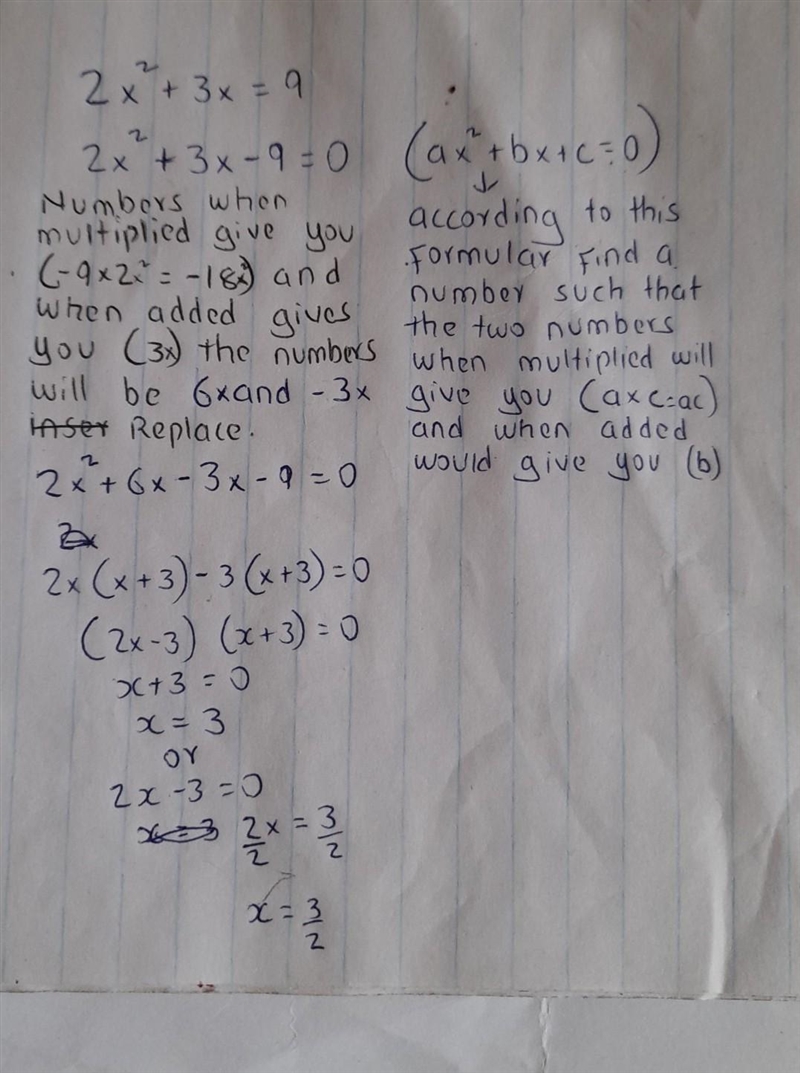 2x² + 3x = 9
2x² + 3x - 9 = 0
Numbers when
multiplied give you
(-9x2x² = -18x²) and
when added gives
you (3x) the numbers
will be 6x and - 3x
inser Replace.
2x² + 6x - 3x - 9 = 0
2x
2x (x + 3) - 3 (x + 3) = 0
(2x - 3) (x + 3) = 0
x + 3 = 0
x = 3
or
2x - 3 = 0
x = 3 2/2 x = 3/2
x = 3/2
(ax² + bx + c = 0)
↓
according to this
formular find a
number such that
the two numbers
when multiplied will
give you (axc=ac)
and when added
would give you (b)